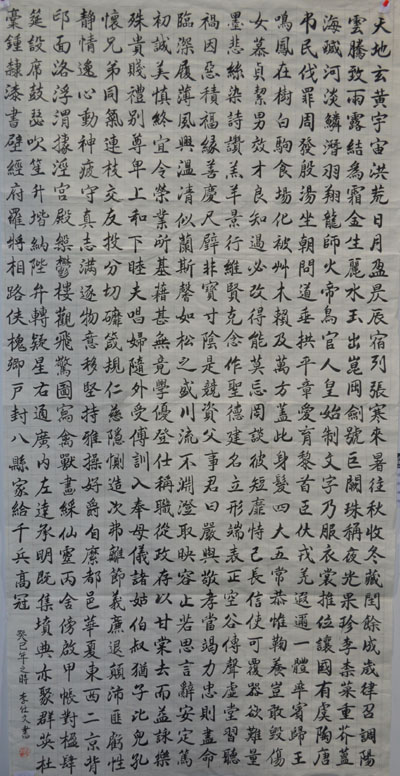 天地玄黃宇宙洪荒日月盈昃辰宿列張寒來暑往秋收冬藏閏餘成歲律召調陽
雲騰致雨露結為霜金生麗水玉出崑岡劍號巨闕珠稱夜光果珍李柰菜重芥薑
海鹹河淡鱗潛羽翔龍師火帝鳥官人皇始制文字乃服衣裳推位讓國有虞陶唐
弔民伐罪周發殷湯坐朝問道垂拱平章愛育黎首臣伏戎羌遐邇一體率賓歸王
鳴鳳在樹白駒食場化被艸木賴及萬方蓋此身髮四大五常恭惟鞠養豈敢毀傷
女慕貞絜男效才良知過必改得能莫忘罔談彼短靡恃己長信使可覆器欲難量
墨悲絲染詩讚羔羊景行維賢克念作聖德建名立形端表正空谷傳聲虛堂習聽
禍因惡積福緣善慶尺璧非寶寸陰是競資父事君曰嚴與敬孝當竭力忠則盡命
臨深履薄夙興溫清似蘭斯馨如松之盛川流不淵澄取映容止若思言辭安定篤
初誠美慎終宜令榮業所基藉甚無竟學優登仕攝職從政存以甘棠去而益詠樂
殊貴賤禮別尊卑上和下睦夫唱婦隨外受傅訓入奉母儀諸姑伯叔猶子比兒孔
懷兄弟同氣連枝交友投分切磨箴規仁慈隱惻造次弗離節義廉退顛沛匪虧性
靜情逸心動神疲守真志滿逐物意移堅持雅操好爵自縻都邑華夏東西二京背
邙面洛浮渭據涇宮殿槃鬱樓觀飛驚圖寫禽獸畫綵仙靈丙舍傍啟甲帳對楹肆
筵設席鼓瑟吹笙升階納陛弁轉疑星右通廣內左達承明既集墳典亦聚群英杜
稾鍾隸漆書壁經府羅將相路俠槐卿戶封八縣家給千兵高冠
癸巳年之時 李仕久書